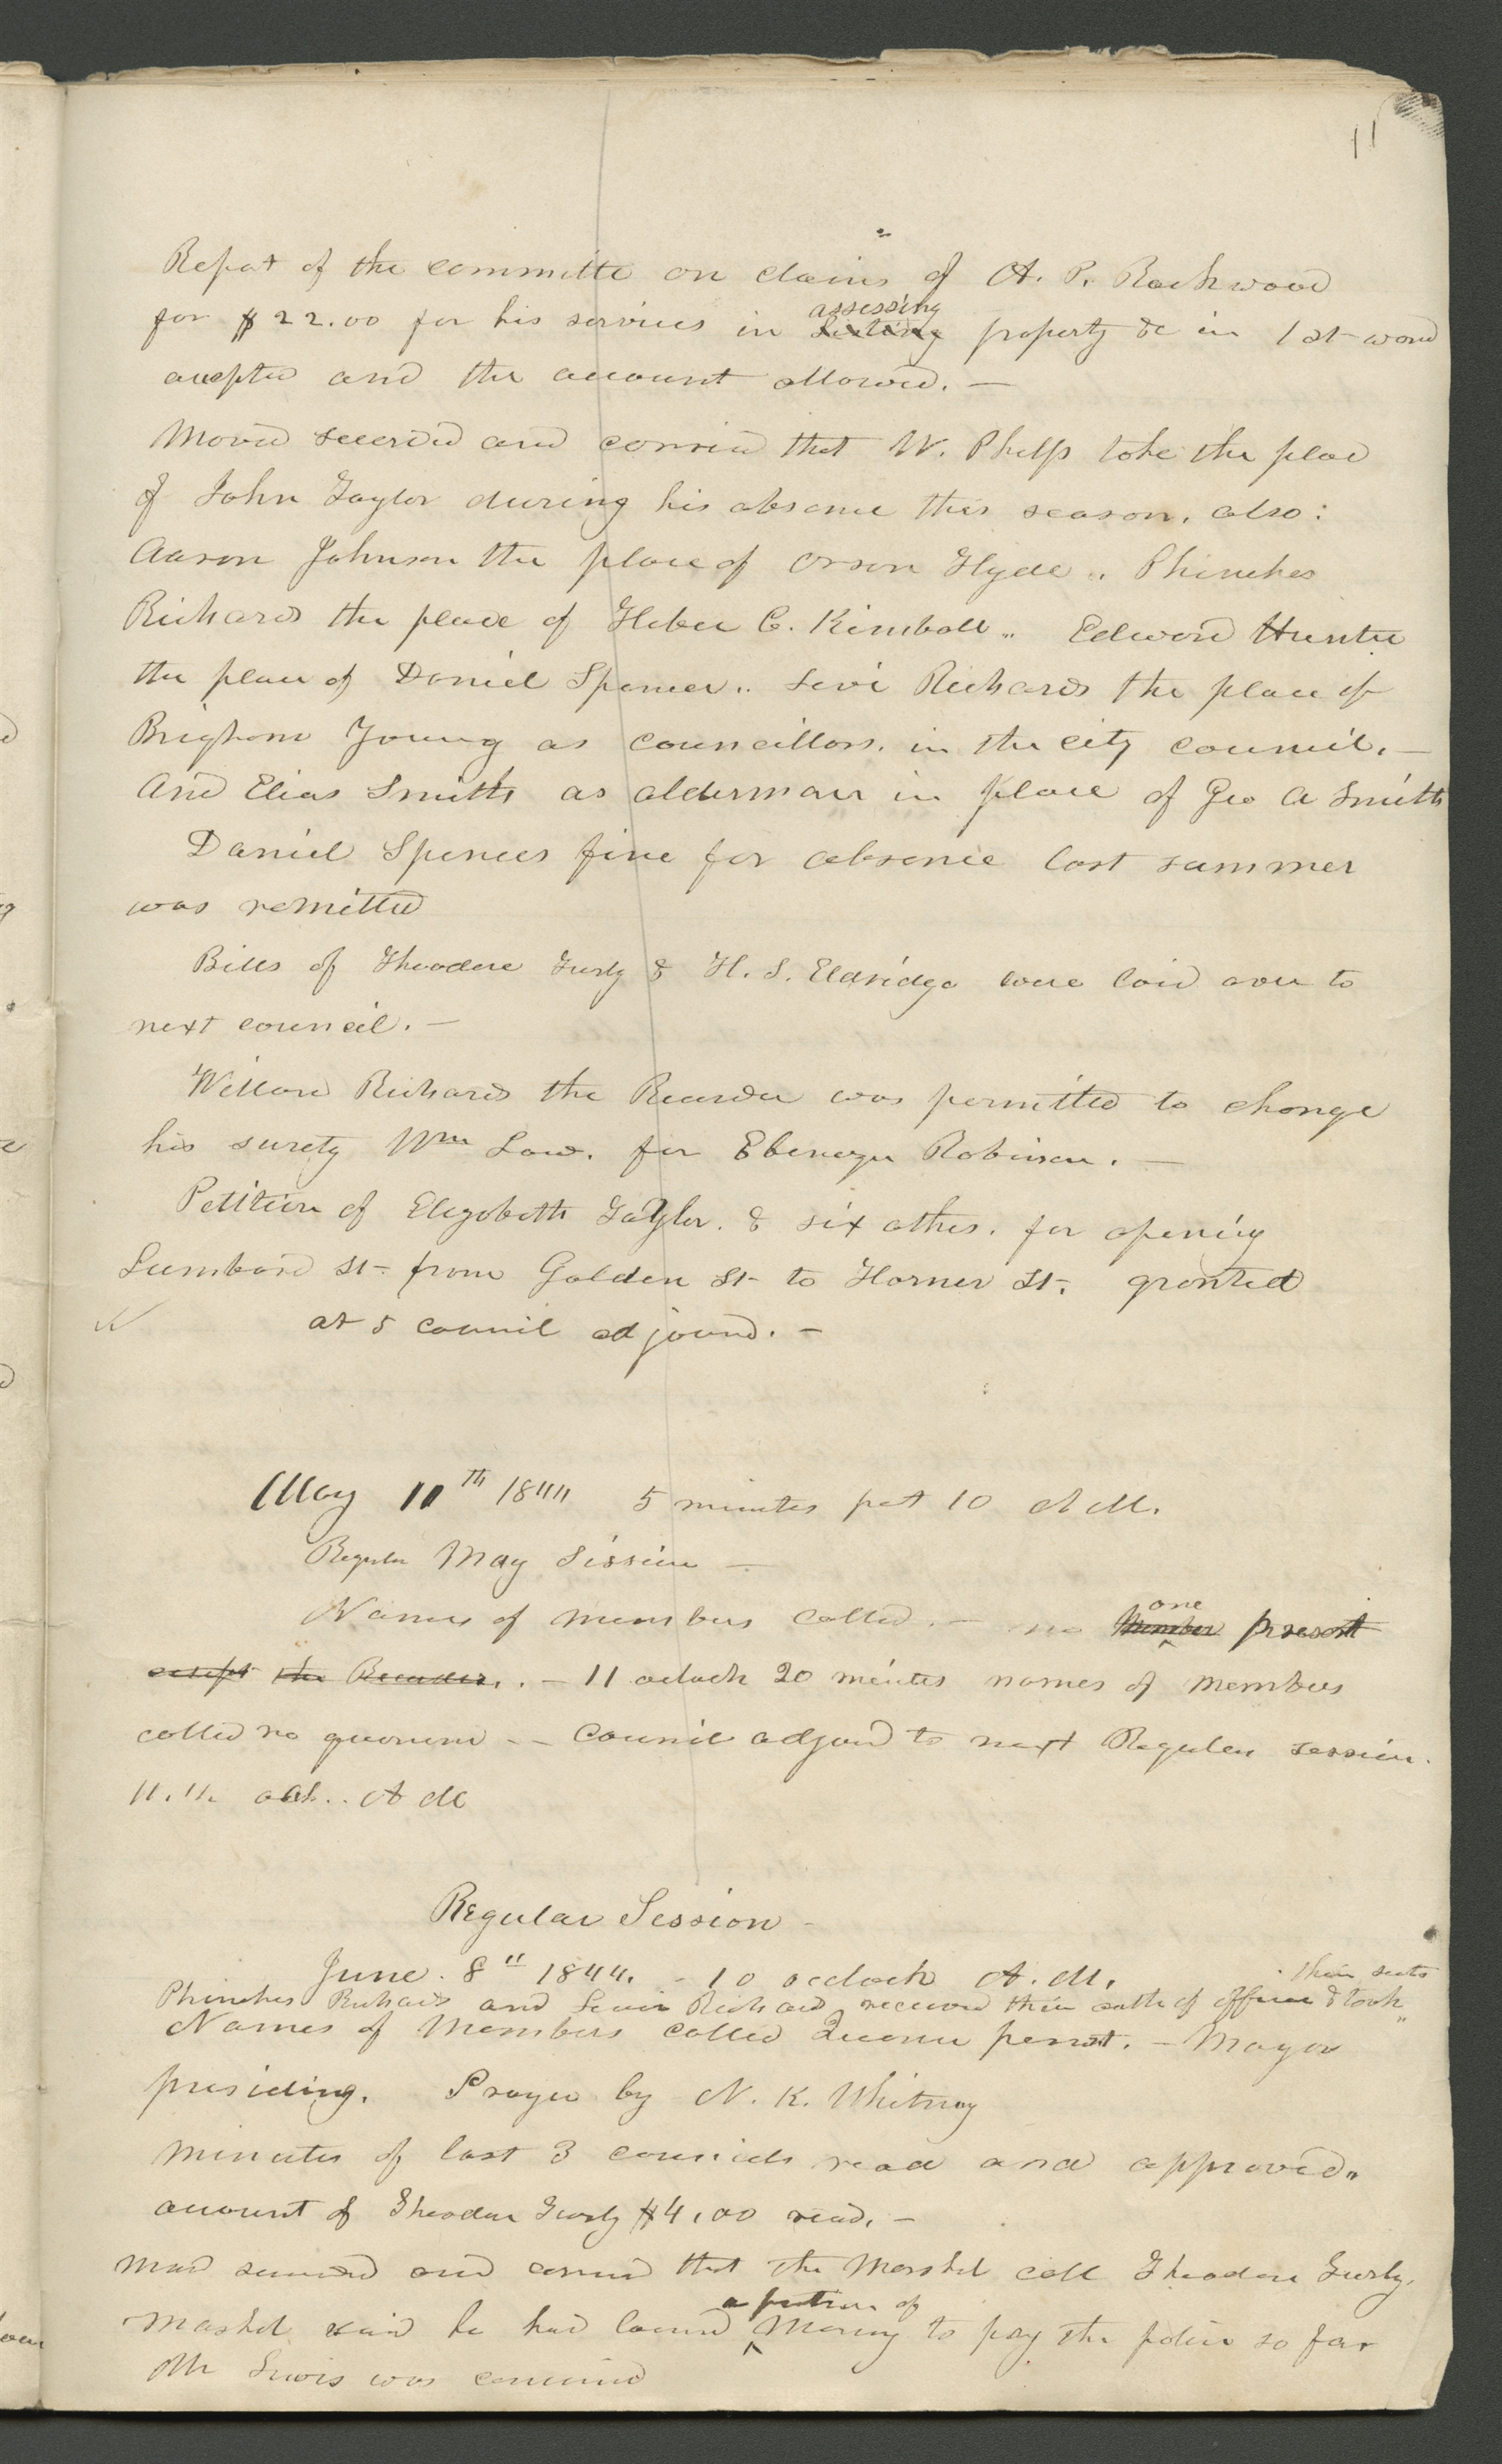 11
Report of the committe on claims of A. P. Rockwood
for $22.00 for his services in assessing property &c in 1st ward
accepted and the account allowed. —
Moved secended and carried that W. Phelps take the place
of John Taylor during his absence this season, also:
Aaron Johnson the place of Orson Hyde,, Phinehas
Richards the place of Heber C. Kimball,, Edward Hunter
the place of Daniel Spencer,, Levi Richards the place of
Brigham Young as councillors. in the city council. —
And Elias Smith as alderman in place of Geo A Smith
Daniel Spencers fine for absence last summer
was remitted
Bills of Theodore Turly & H. S. Eldridge were laid over to
next council. —
Willard Richards the Recorder was permitted to change
his surety Wm Law. for Ebenezer Robinson. —
Petition of Elizabeth Taylor. & six others. for opening
Lumbard St- from Golden St- to Horner St. granted
at 5 council adjourned. —
May 11th 1844 5 minutes past 10 A M.
Regular May Session —
Names of members called. — no one Member present
except the Recorder. . — 11 oclock 20 minutes names of members
called no quorum - - Council adjourd to next Regular session.
A M
Regular Session -
June. 8" 1844. - 10 oclock A. M.
Phinehas Richards and Levi Richards received their oath of office & took their seats
Names of Members called Quorum persent. — Mayor
presiding. Prayer by N. K. Whitney
minutes of last 3 councils read and approved,,
account of Theodore Turly $4,00 read. —
moved seconded and carried that the Marshal call Theodore Turly.
Mashal said he had loaned a portion of Money to pay the police so far
Mr Lewis was